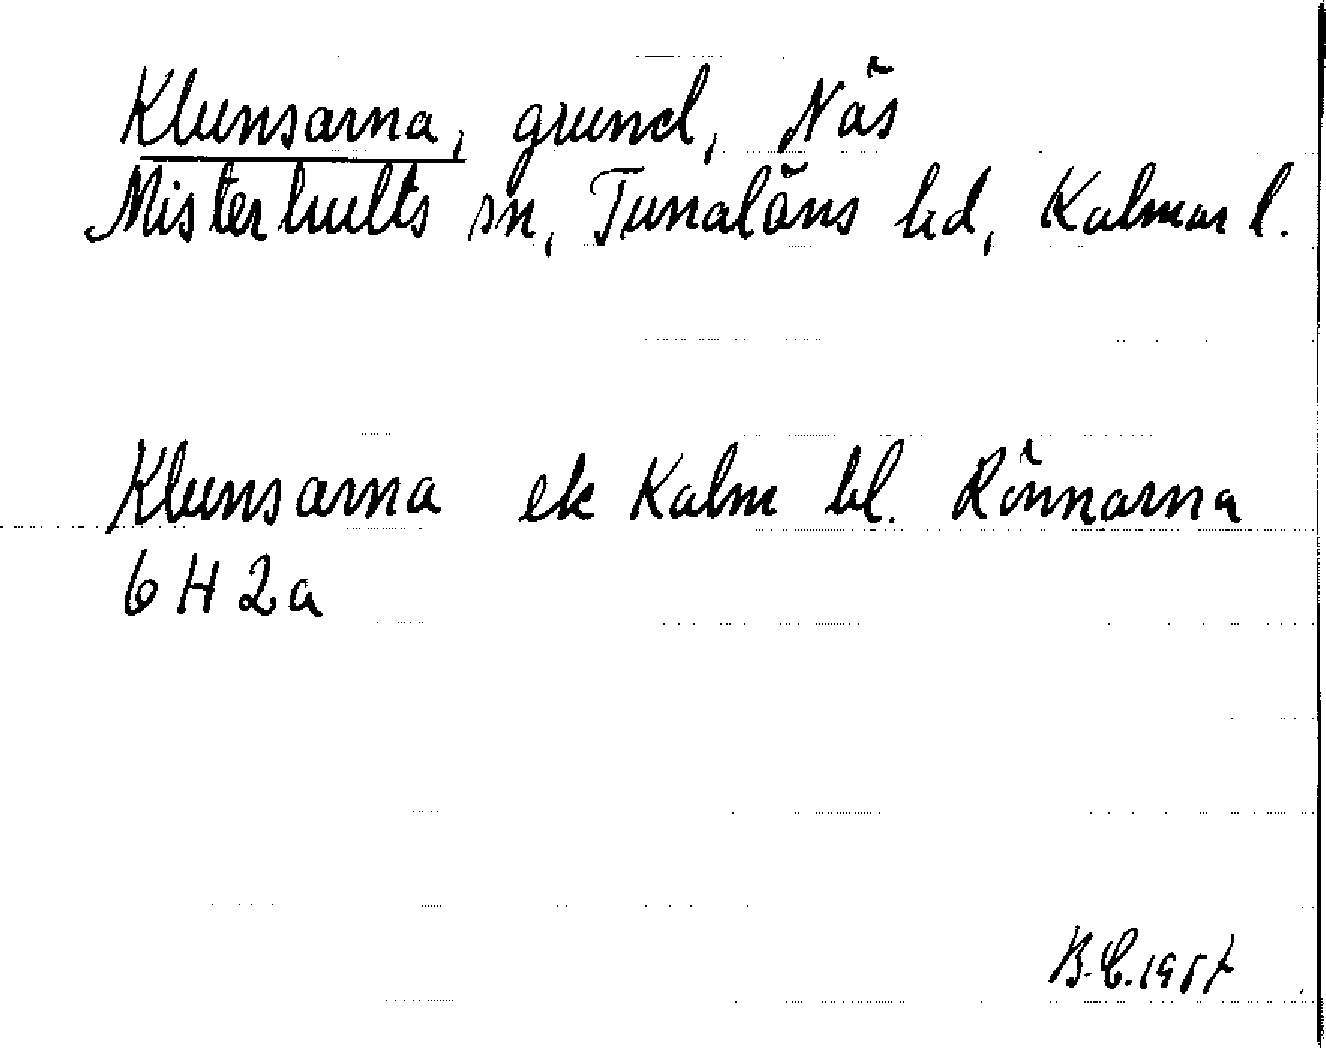 Klunsarna, grund, Näs
Misterhults sn, Tunaläns hd, Kalmar l.
Klunsarna ek Kalm bl. Rönnarna
6 H 2a
B.C. 1957